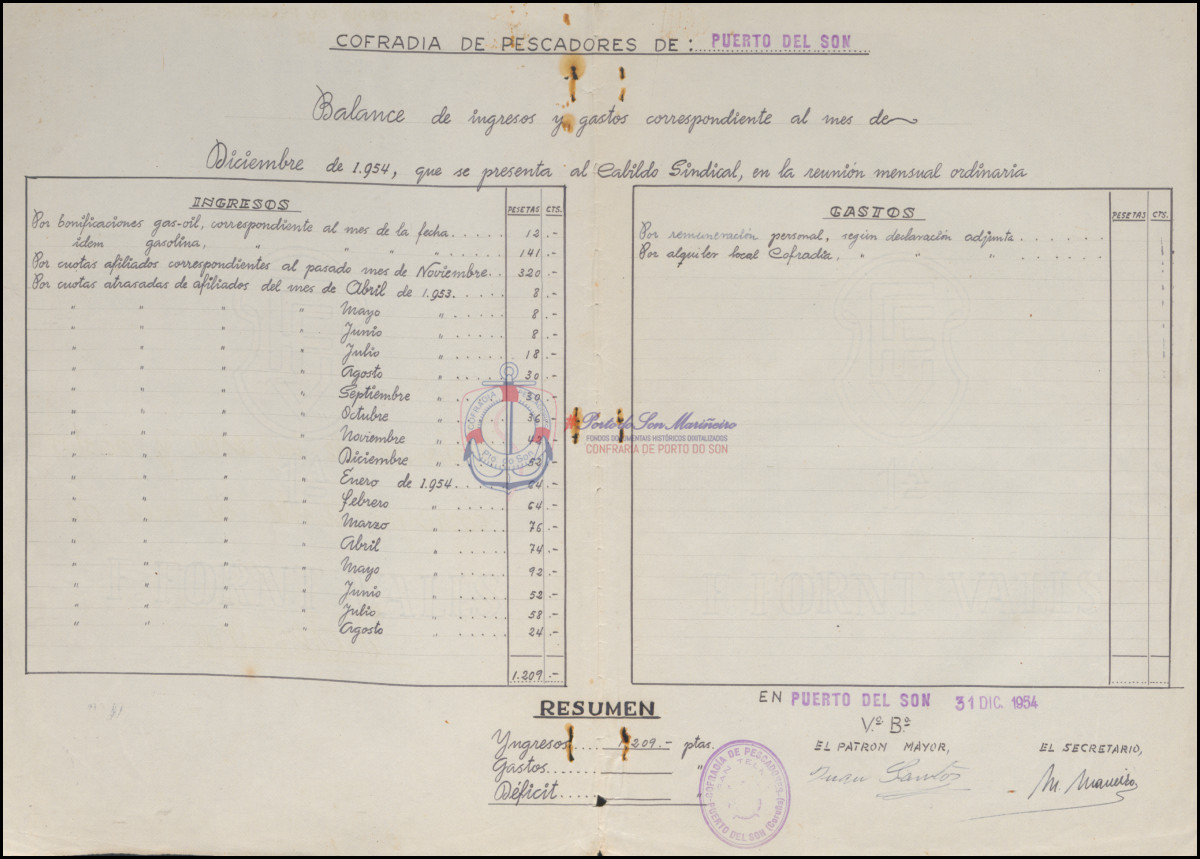 COFRADIA DE PESCADORES DE: PUERTO DEL SON
Balance de ingresos y gastos correspondiente al mes de
Diciembre de 1.954, que se presenta al Cabildo Sindical, en la reunión mensual ordinaria
INGRESOS PESETAS CTS.
Por bonificaciones gas-oil, correspondiente al mes de la fecha..... 12 .-
idem gasolina, " " " ..... 141 .-
Por cuotas afiliados correspondientes al pasado mes de Noviembre.. 320 .-
Por cuotas atrasadas de afiliados del mes de Abril de 1.953...... 8 .-
" " " " Mayo " ..... 8 .-
" " " " Junio " ..... 8 .-
" " " " Julio " ..... 18 .-
" " " " Agosto " ..... 30 .-
" " " " Septiembre " ..... 30 .-
" " " " Octubre " ..... 36 .-
" " " " Noviembre " ..... 42 .-
" " " " Diciembre " ..... 52 .-
" " " " Enero de 1.954..... 64 .-
" " " " febrero " ..... 64 .-
" " " " Marzo " ..... 76 .-
" " " " Abril " ..... 74 .-
" " " " Mayo " ..... 92 .-
" " " " Junio " ..... 52 .-
" " " " Julio " ..... 58 .-
" " " " Agosto " ..... 24 .-
1.209 .-
GASTOS PESETAS CTS.
Por remuneración personal, según declaración adjunta.......
Por alquiler local Cofradía, " " " ......
COFRADÍA
Pto. do Son
Porto do Son Mariñeiro
FONDOS DOCUMENTAIS HISTÓRICOS DIGITALIZADOS
CONFRARÍA DE PORTO DO SON
RESUMEN
Yngresos.... 1.209.- ptas.
Gastos...... "
Déficit....
EN PUERTO DEL SON 31 DIC. 1954
Vº. Bº
EL PATRON MAYOR,
Juan Santos
EL SECRETARIO,
M. Maneiro
COFRADIA DE PESCADORES
SAN TELMO
PUERTO DEL SON (Coruña)